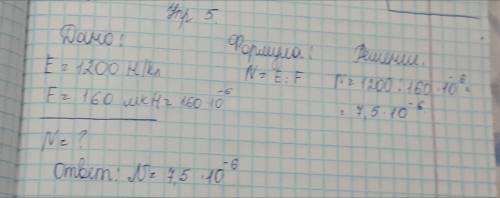 Упр 5.
Дано: Формула: Решение.
E = 1200 Н/кл N = E : F N = 1200 : 160 · 10⁻⁶ =
F = 160 мкН = 160 · 10⁻⁶ = 7,5 · 10⁻⁶
N = ?
Ответ: N = 7,5 · 10⁻⁶